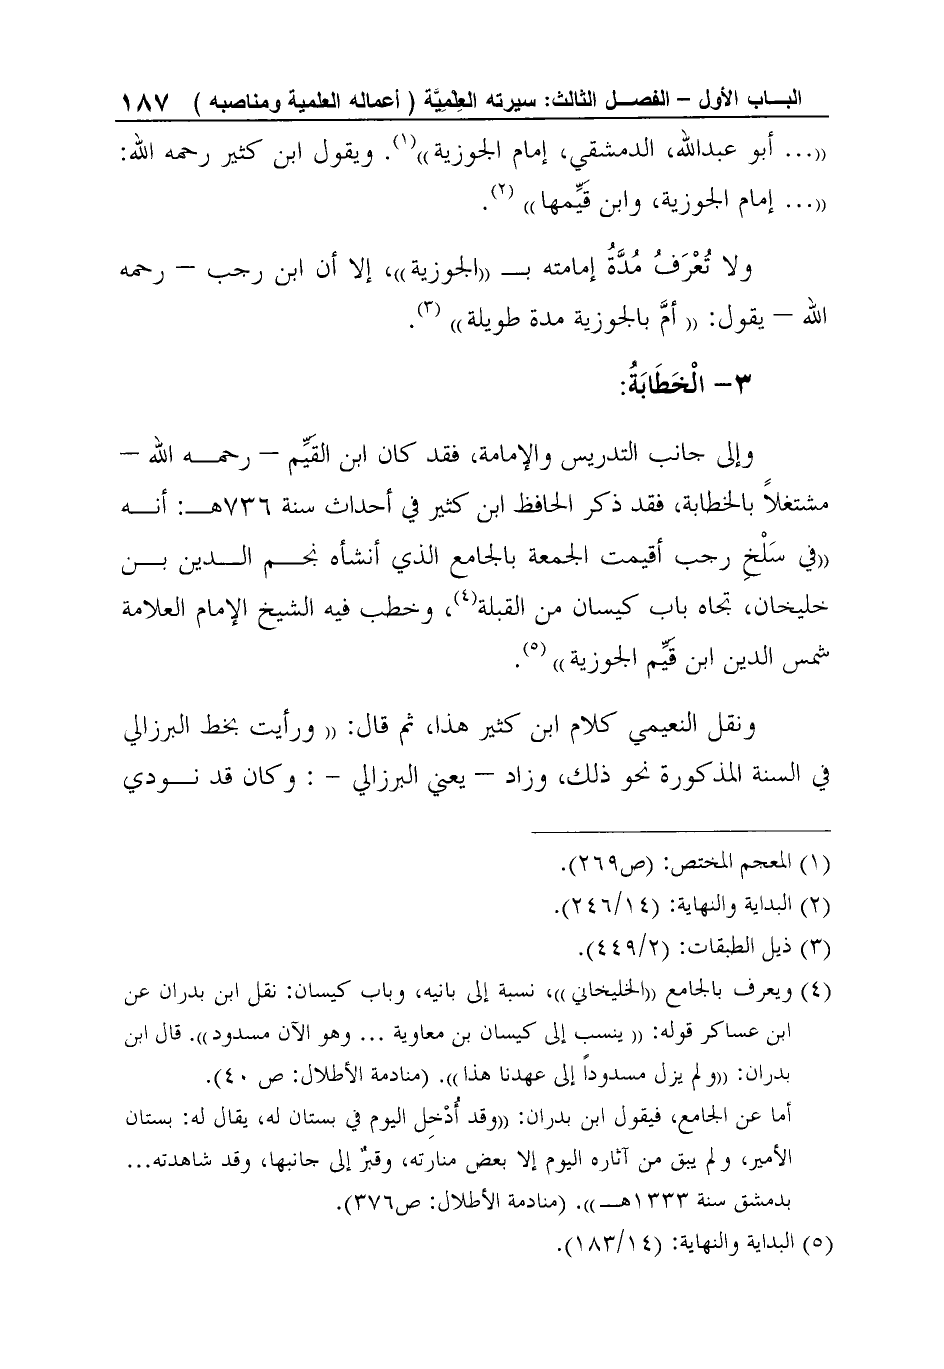 البـاب الأول – الفصـل الثالث: سيرته العِلمِيَّة ( أعماله العلمية ومناصبه ) ١٨٧
((... أبو عبدالله، الدمشقي، إمام الجوزية))(١). ويقول ابن كثير رحمه الله:
((... إمام الجوزية، وابن قَيِّمها)) (٢).
ولا تُعْرَفُ مُدَّةُ إمامته بـ ((الجوزية))، إلا أن ابن رجب – رحمه
الله – يقول: (( أمَّ بالجوزية مدة طويلة)) (٣).
٣– الْخَطَابَةُ:
وإلى جانب التدريس والإمامة، فقد كان ابن القَيِّم – رحمـه الله –
مشتغلاً بالخطابة، فقد ذكر الحافظ ابن كثير في أحداث سنة ٧٣٦هـ: أنـه
((في سَلْخِ رجب أقيمت الجمعة بالجامع الذي أنشأه نجـم الـدين بـن
خليخان، تجاه باب كيسان من القبلة(٤)، وخطب فيه الشيخ الإمام العلامة
شمس الدين ابن قَيِّم الجوزية)) (٥).
ونقل النعيمي كلام ابن كثير هذا، ثم قال: (( ورأيت بخط البرزالي
في السنة المذكورة نحو ذلك، وزاد – يعني البرزالي - : وكان قد نـودي
(١) المعجم المختص: (ص٢٦٩).
(٢) البداية والنهاية: (٢٤٦/١٤).
(٣) ذيل الطبقات: (٤٤٩/٢).
(٤) ويعرف بالجامع ((الخليخاني))، نسبة إلى بانيه، وباب كيسان: نقل ابن بدران عن
ابن عساكر قوله: (( ينسب إلى كيسان بن معاوية ... وهو الآن مسدود)). قال ابن
بدران: ((و لم يزل مسدوداً إلى عهدنا هذا)). (منادمة الأطلال: ص ٤٠).
أما عن الجامع، فيقول ابن بدران: ((وقد أُدْخِل اليوم في بستان له، يقال له: بستان
الأمير، و لم يبق من آثاره اليوم إلا بعض منارته، وقبرٌ إلى جانبها، وقد شاهدته...
بدمشق سنة ١٣٣٣هـ)). (منادمة الأطلال: ص٣٧٦).
(٥) البداية والنهاية: (١٨٣/١٤).